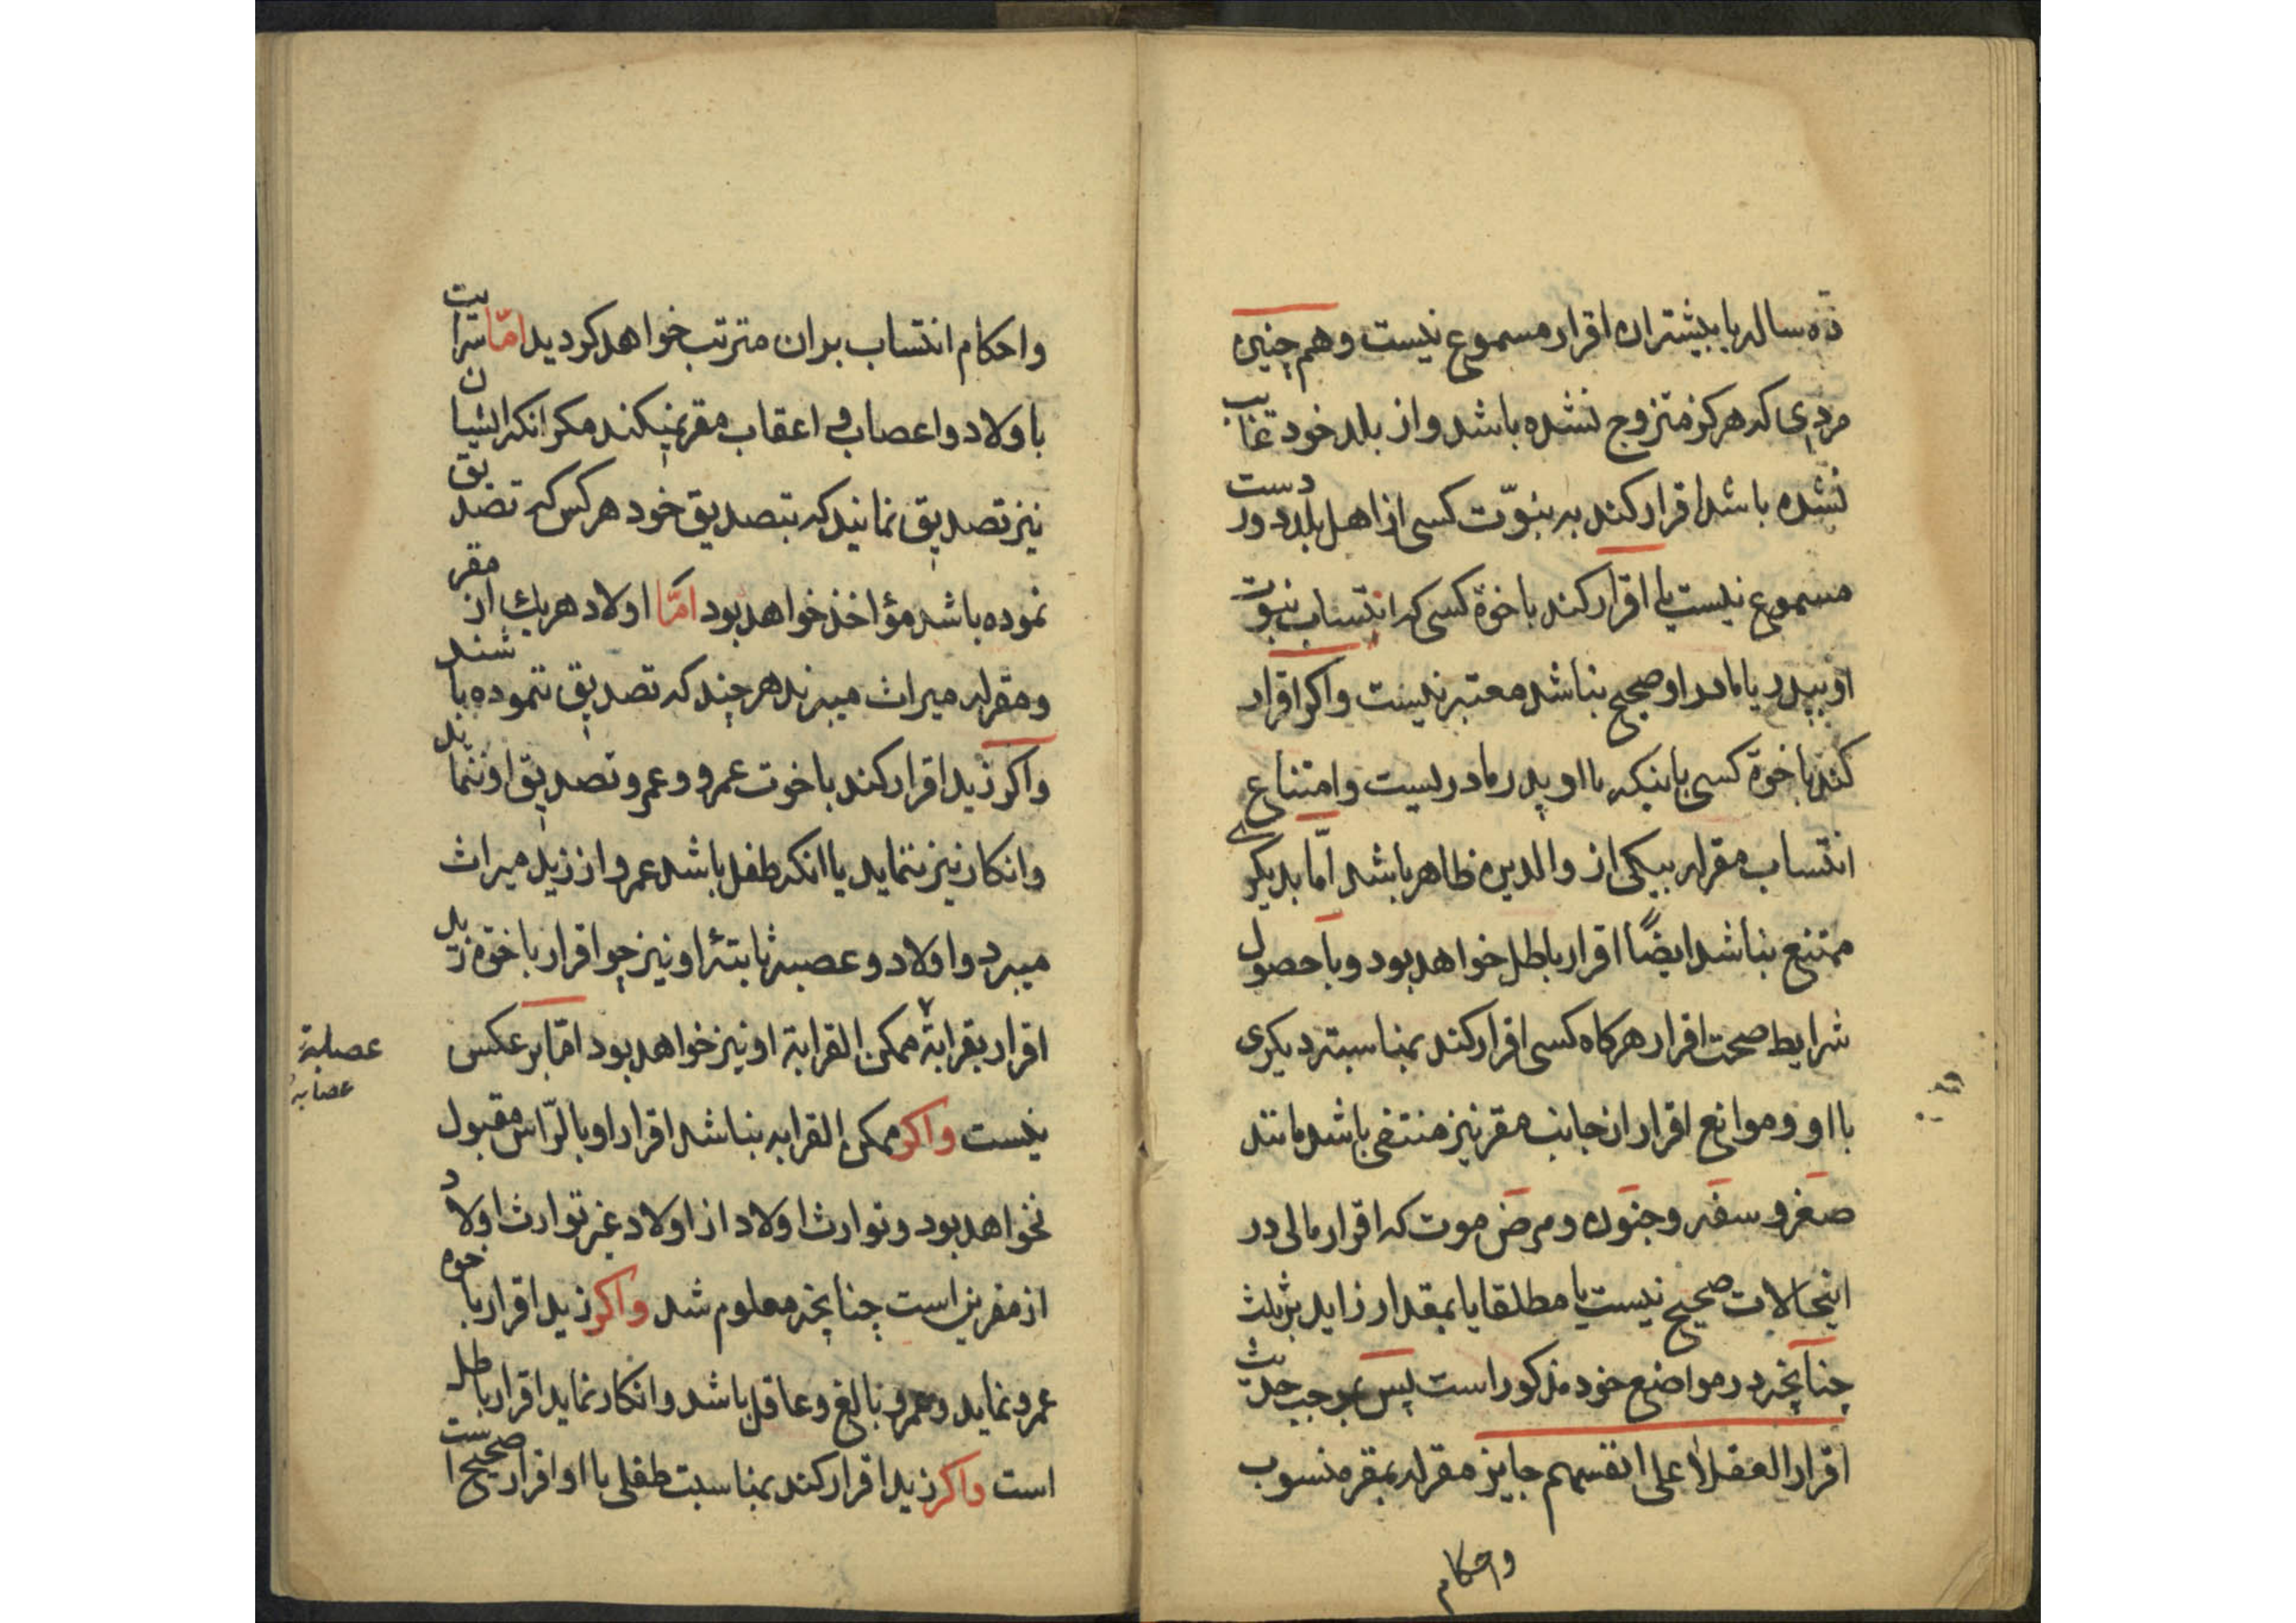 ده ساله یا بیشتر ان اقرار مسموع نیست و هم چنین
مردی که هرکز متزوج نشده باشد و از بلد خود غایب
نشده باشد اقرار کند به بنوّت کسی از اهل بلد دور دست
مسموع نیست یا اقرار کند باخوة کسی که انتساب بنوت
او بپدر یا مادر او صحیح نباشد معتبر نیست و اکر اقرار
کند باخوة کسی باینکه با او پدر مادریست و امتناع
انتساب مقر له بیکی از والدین ظاهر باشد امّا بدیکری
ممتنع نباشد ایضًا اقرار باطل خواهد بود و با حصول
شرایط صحت اقرار هرکاه کسی اقرار کند بمناسبته دیکری
با او و موانع اقرار از جانب مقر نیز منتفی باشد مانند
صغر و سفه و جنون و مرض موت که اقرار مالی در
اینحالات صحیح نیست یا مطلقا یا بمقدار زاید بر ثلث
چنانچه در مواضع خود مذکور است پس بموجب حدیث
اقرار العقلاٰ علی انفسهم جایز مقر له بمقر منسوب
و احکام
و احکام انتساب بران مترتب خواهد کردید امّا سرایت
باولاد و اعصاب و اعقاب مقر نمیکند مکر انکه ایشان
نیز تصدیق نمانید که بتصدیق خود هر کس که تصدیق
نموده باشد مؤاخذ خواهد بود امّا اولاد هریك از مقر
و مقر له میراث میبرند هر چند که تصدیق ننموده باشند
و اکر زید اقرار کند باخوت عمرو و عمرو تصدیق او ننماید
و انکار نیز ننماید یا انکه طفل باشد عمرو از زید میراث
میبرد و اولاد و عصبهٔ ثابتهٔ او نیز چو اقرار باخوة زید
اقرار بقرابة ممکن القرابة او نیز خواهد بود امّا بر عکس
عصابة
عصابه
نیست و اکر ممکن القرابه نباشد اقرار او بالرّاس مقبول
نخواهد بود و توارث اولاد از اولاد غیر توارث اولاد
از مقرین است چنانچه معلوم شد و اکر زید اقرار باخوه
عمرو نماید و عمرو بالغ و عاقل باشد و انکار نماید اقرار باطل
است و اکر زید اقرار کند بمناسبت طفلی با او اقرار صحیح است